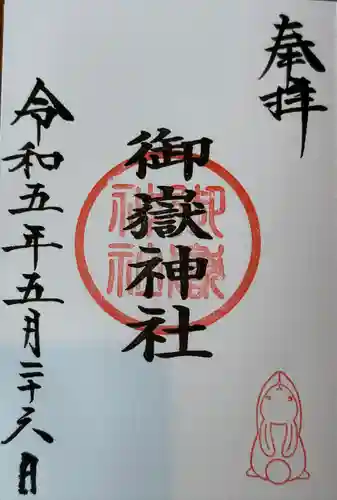 奉拝
御嶽神社
御嶽神社
令和五年五月二十六日